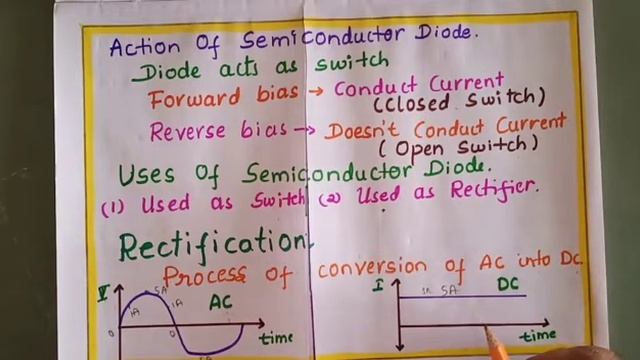 Action Of Semiconductor Diode.
Diode acts as switch
Forward bias → Conduct Current
(Closed Switch)
Reverse bias → Doesn't Conduct Current
( Open Switch)
Uses Of Semiconductor Diode.
(1) Used as Switch (2) Used as Rectifier.
Rectification
Process of conversion of AC into DC
I
5A
1A
1A
AC
0
0
time
I
5A
DC
time